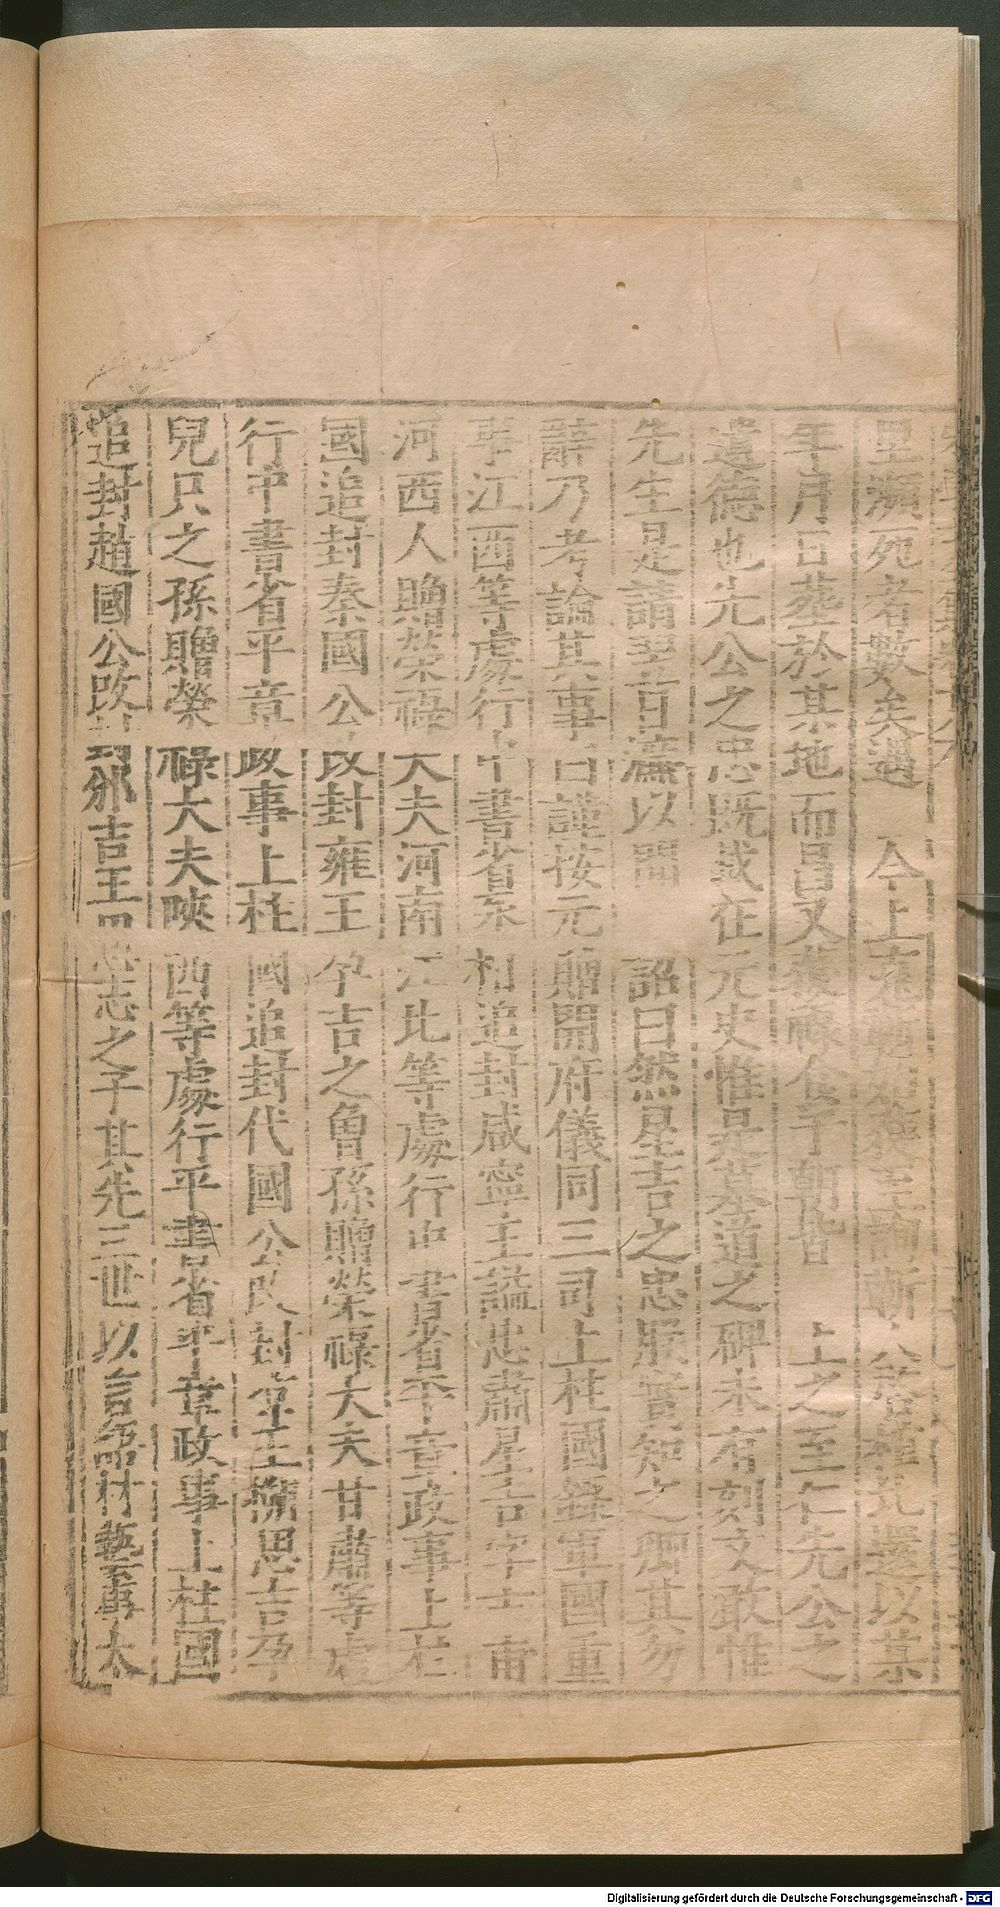 里瀕死者數矣遇　今上
年月日葬於其地而昌又　上之至仁先公之
遺德也先公之忠既載在元史惟是墓道之碑未有刻文敢惟
先生是請翌日薦以聞　詔曰然星吉之忠朕實知之卿其勿
辭乃考論其事曰謹按元贈開府儀同三司上柱國錄軍國重
事江西等處行中書省丞相追封咸寧王謚忠肅星吉字吉甫
河西人贈榮祿大夫河南江北等處行中書省平章政事上柱
國追封秦國公改封雍王孕吉之曾孫贈榮祿大夫甘肅等處
行中書省平章政事上柱國追封代國公改封涼王搠思吉孕
兒只之孫贈榮祿大夫陝西等處行中書省平章政事上柱國
追封趙國公改封邠吉王志之子其先三世以言論材藝事太
Digitalisierung gefördert durch die Deutsche Forschungsgemeinschaft - DFG